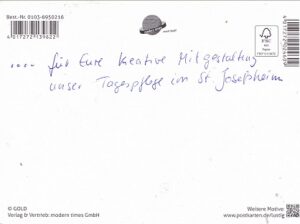 Best.-Nr. 0103-6950216
4 017272 139622
.... für Eure kreative Mitgestaltung
unser Tagespflege im St. Josefsheim
© GOLD
Verlag & Vertrieb: modern times GmbH
Weitere Motive
www.postkarten.de/lustig